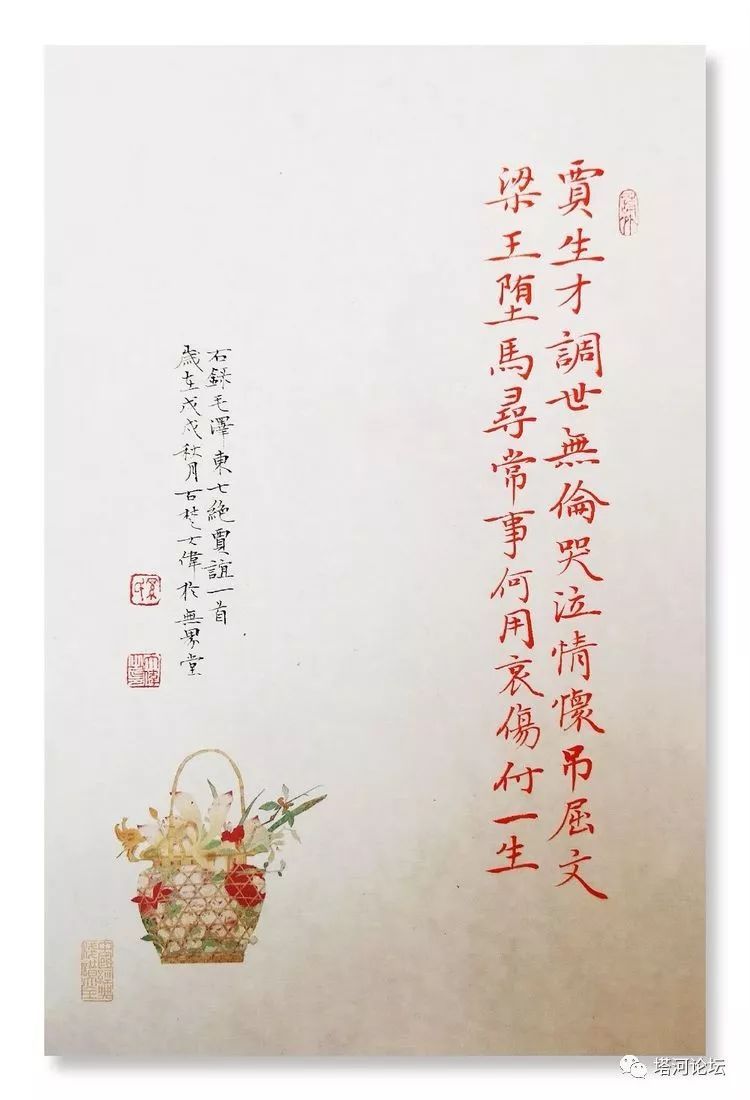 賈生才調世無倫哭泣情懷吊屈文
梁王堕馬尋常事何用哀傷付一生
右錄毛澤東七絶賈誼一首
歲在戊戌秋月古楚大偉於無界堂
塔河论坛